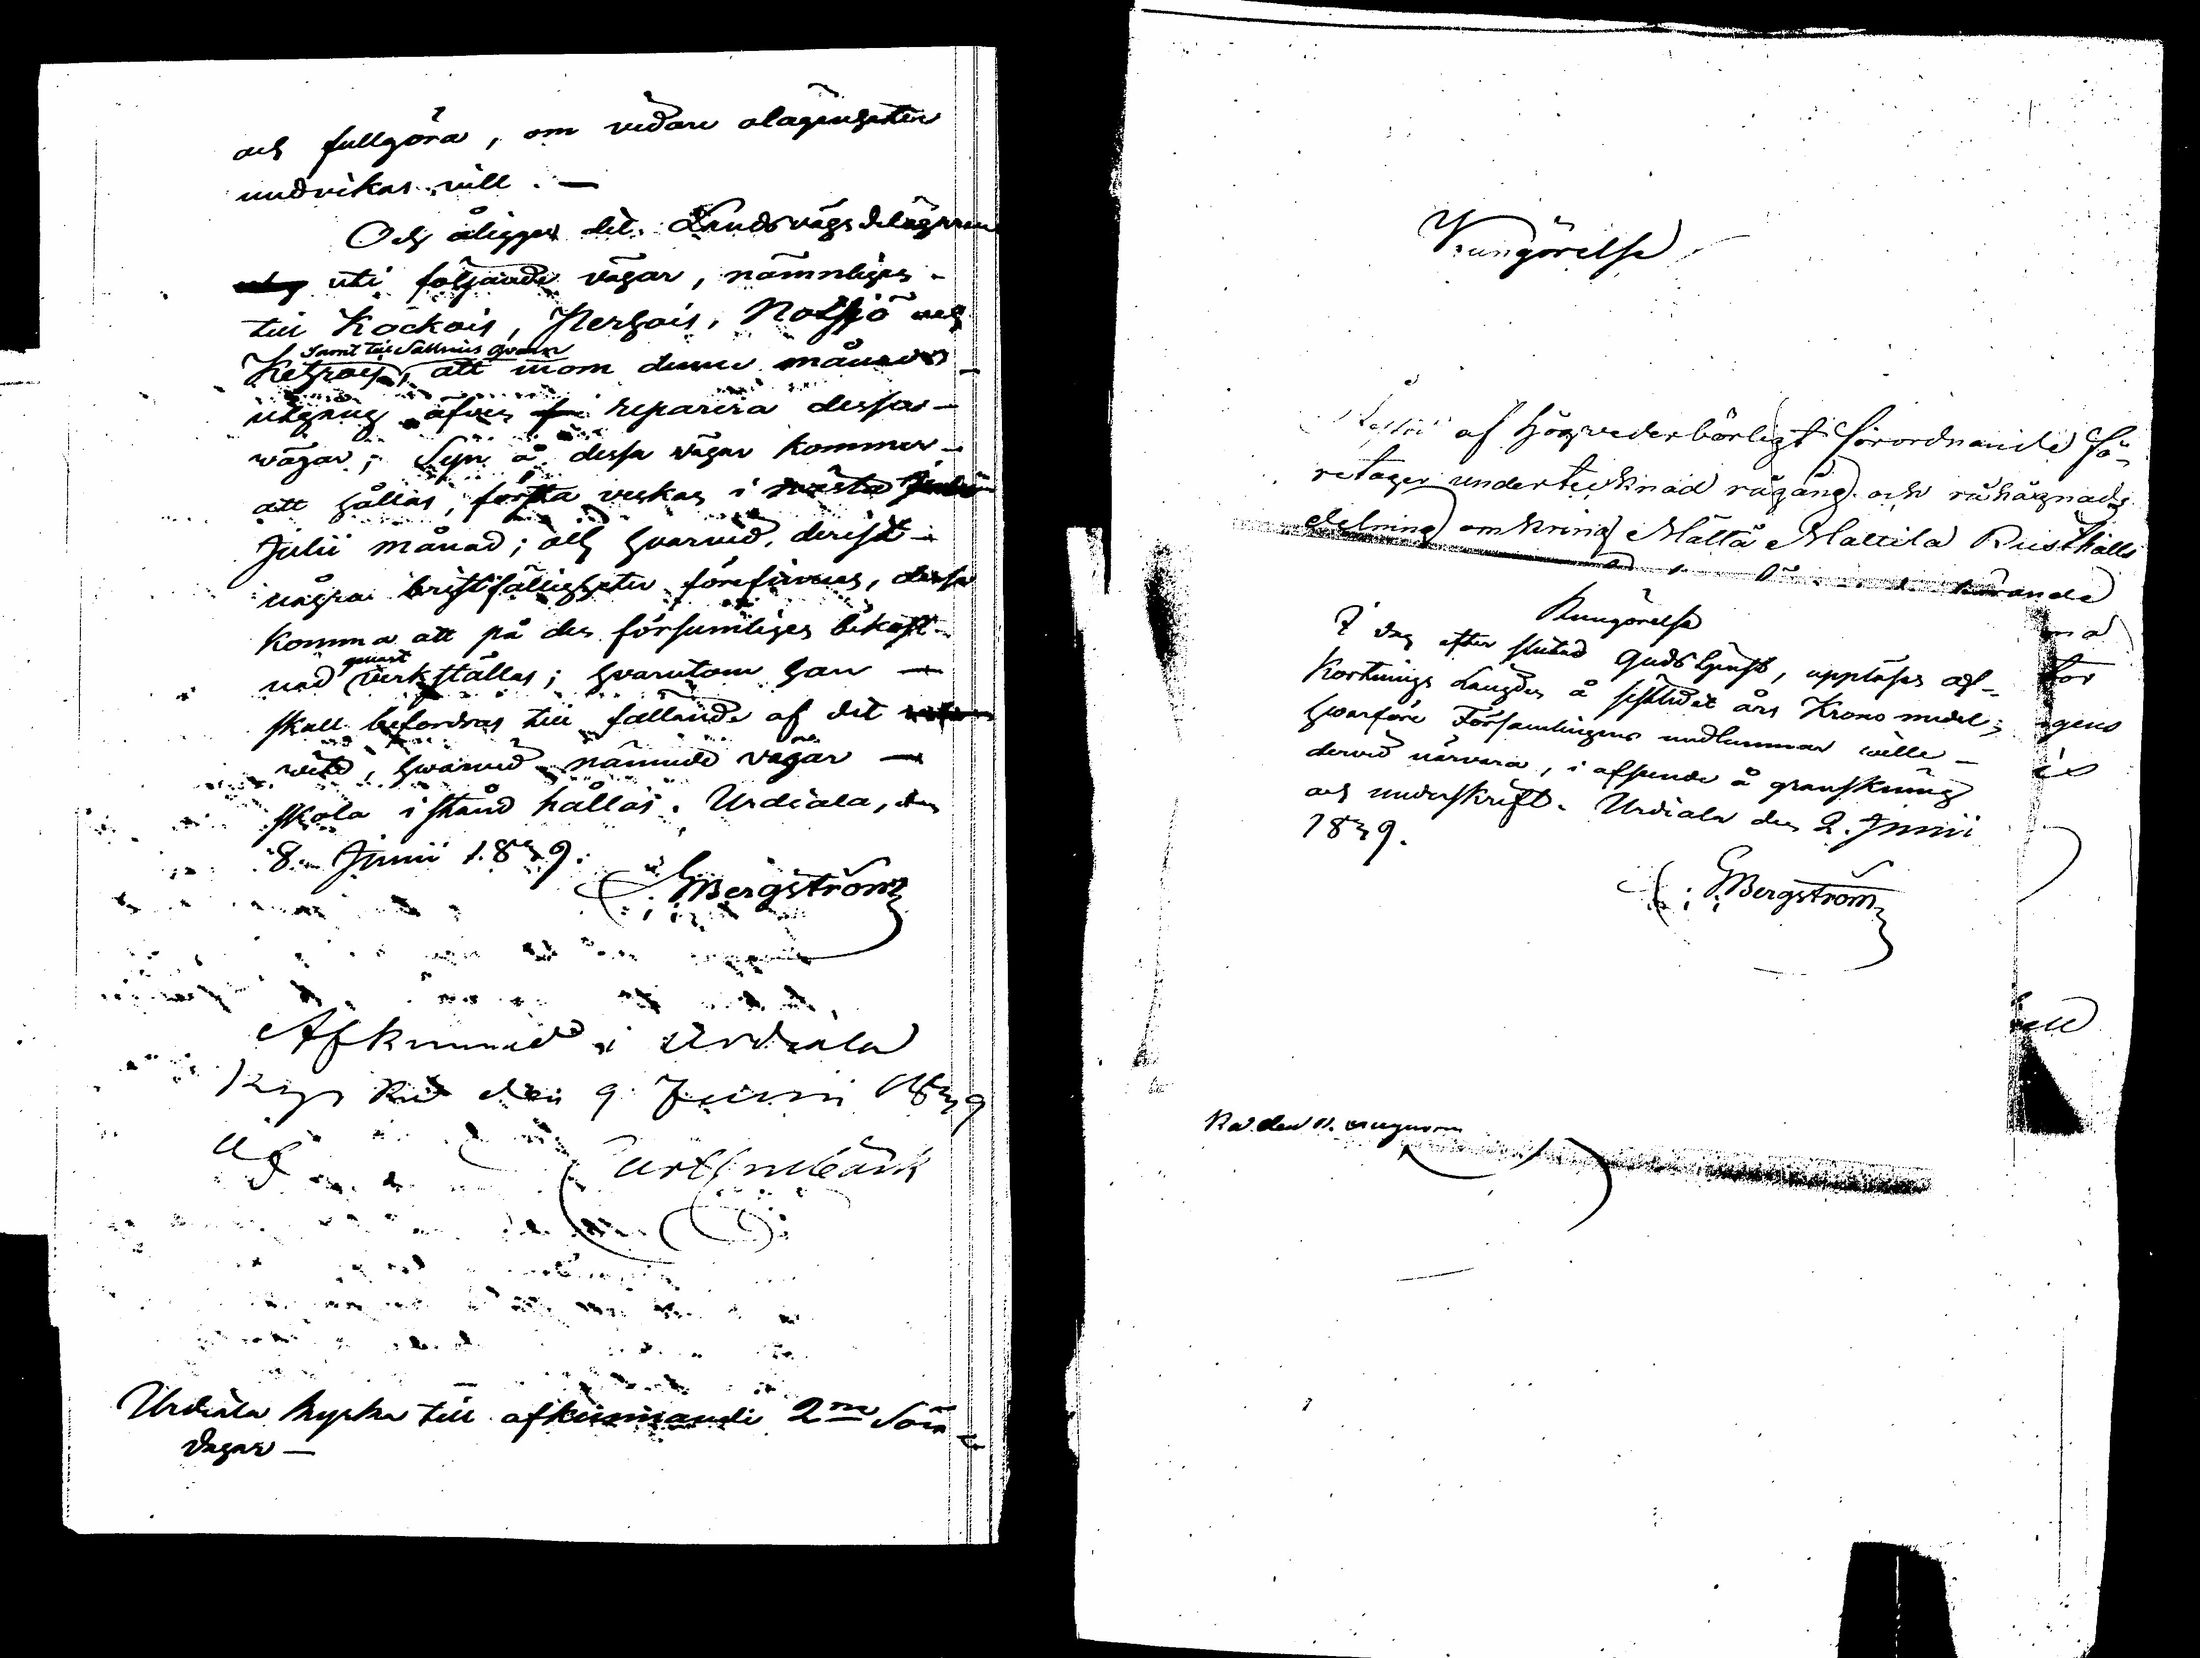 och fullgöra, om vidare olägenheter
undvikas vill. —
Och åligger det Landsvägsdelägarne
uti följande vägar, nämnligen
till Kockois, Nerhois, Notsjö och
samt till Salmis qvarn
Kehrois, att inom denne månads
utgång äfven reparera dessa
vägar; Syn å dessa vägar kommer
att hållas, första veckan i nästa
Julii månad; och hvarvid, derest
några bristfälligheter förefinnas, dessa
komma att på den försumliges bekost-
genast
nad verkställas; hvarutom han —
skall befordras till fällande af det
vite, hwarvid nämnde vägar —
skola i stånd hållas. Urdiala, den
8. Junii 1839.
G Bergström
Afkunnad i Urdiala
Kyrka den 9 Junii 1839
af
Urdiala kyrka till afkunnande 2ne Sön-
dagar —
Kungörelse
af Högvederbörligt förordnande fö-
retager undertecknad rågång och råhägnads
delning omkring Mälla Mattila Rusthålls
hörande
Kungörelse
I dag efter slutad Gudstjenst, uppläses af-
kortnings Längden å sistlidet års Krono medel;
hwarföre Församlingens medlemmar wille —
dervid närvara, i afseende å granskning
och underskrift. Urdiala den 2. Junii
1839.
G Bergström